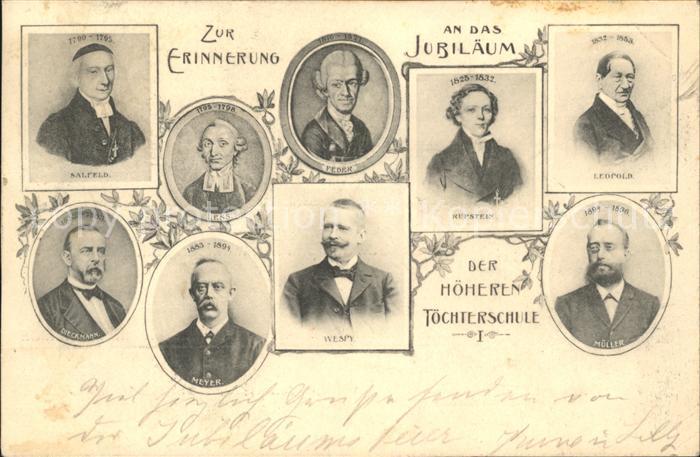 ZUR ERINNERUNG
AN DAS JUBILÄUM
DER HÖHEREN TÖCHTERSCHULE
I
1790-1795.
SALFELD.
1795-1798.
1810-1821.
FEDER.
1825-1832.
RUPSTEIN.
1832-1853.
LEOPOLD.
DIECKMANN.
1885-1894.
MEYER.
WESPY.
1894-1896.
MÜLLER.
Viel herzlich Grüße senden von
der Jubiläums feier